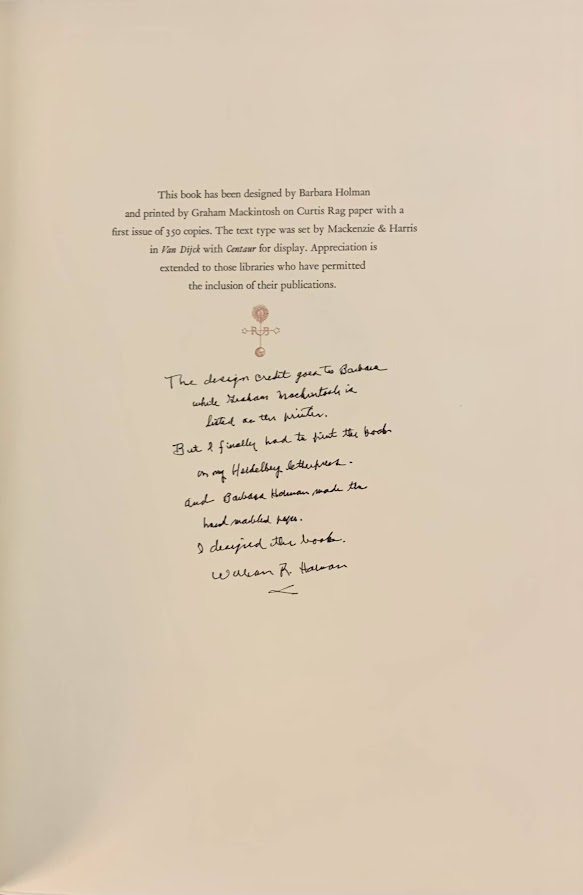 This book has been designed by Barbara Holman
and printed by Graham Mackintosh on Curtis Rag paper with a
first issue of 350 copies. The text type was set by Mackenzie & Harris
in Van Dijck with Centaur for display. Appreciation is
extended to those libraries who have permitted
the inclusion of their publications.
R B
The design credit goes to Barbara
while Graham Mackintosh is
listed as the printer.
But I finally had to print the book
on my Heidelberg letterpress.
and Barbara Holman made the
hand marbled paper.
I designed the book.
William R. Holman